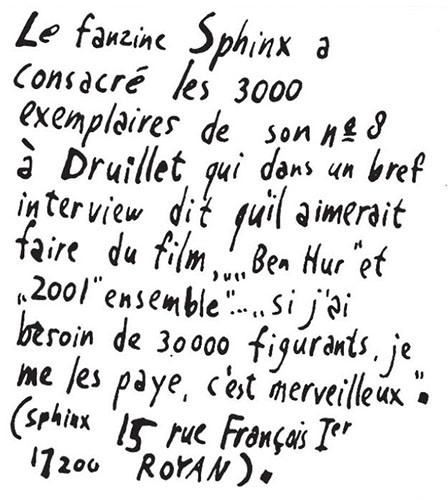 Le fanzine Sphinx a
consacré les 3000
exemplaires de son nº 8
à Druillet qui dans un bref
interview dit qu'il aimerait
faire du film „„Ben Hur" et
„2001" ensemble"...„si j'ai
besoin de 30000 figurants, je
me les paye, c'est merveilleux".
(Sphinx 15 rue François Ier
17200 ROYAN).